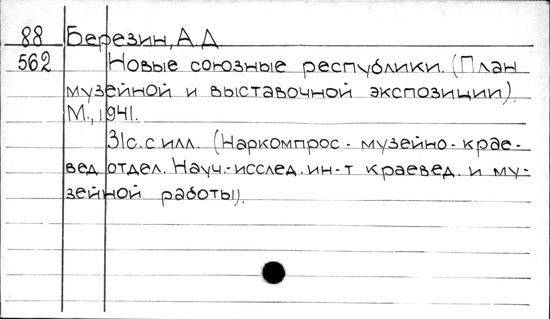 88 Березин, А.Д
562 Новые союзные республики. (План
музейной и выставочной экспозиции).
М., 1941.
31с. с илл. (Наркомпрос - музейно-крае-
вед. отдел. Науч.-исслед. ин-т краевед. и му-
зейной работы).